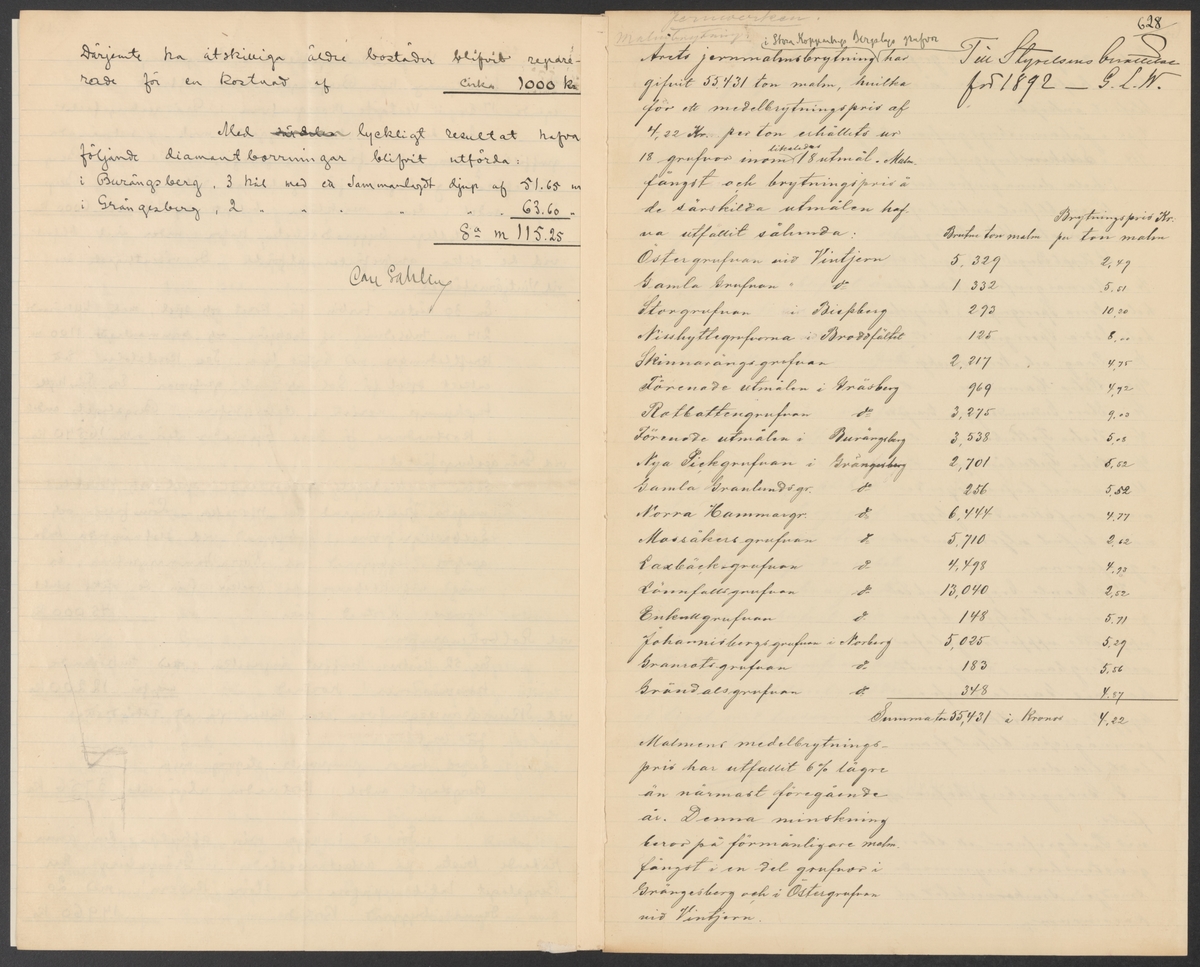 Därjemte ha åtskilliga äldre bostäder blifvit repare-
rade för en kostnad af cirka 1000 kr
Med lyckligt resultat hafva
följande diamantborrningar blifvit utförda:
i Burängsberg, 3 hål med ett sammanlagdt djup af 51.65 m
i Grängesberg, 2 " " " " " 63.60 "
Sa m 115.25
Carl Sahlin
628
Jernverken.
Malmbrytning:
i Stora Kopparbergs Bergslags grufvor
Till Styrelsens berättelse
för 1892 — G. L. W.
Årets jernmalmsbrytning har
gifvit 55.431 ton malm, hvilka
för ett medelbrytningspris af
4,22 Kr. per ton erhållits ur
18 grufvor inom likaledes 18 utmål. Malm-
fångst och brytningspris å
de särskilda utmålen haf-
va utfallit sålunda:
Brutne ton malm Brytningspris Kr. per ton malm
Östergrufvan vid Vintjern 5,329 2,49
Gamla Grufvan do 1 332 5,51
Storgrufvan i Bispberg 293 10,20
Nisshyttegrufvorna i Broddfältet 125 8,00
Skinnarängsgrufvan 2,217 4,75
Förenade utmålen i Gräsberg 969 4,92
Rotbattengrufvan do 3,275 9,00
Förenade utmålen i Burängsberg 3,538 5,08
Nya Pickgrufvan i Grängesberg 2,701 5,52
Gamla Granlundsgr. do 256 5,52
Norra Hammargr. do 6,444 4,77
Mossåkersgrufvan do 5,710 2,62
Laxbäcksgrufvan do 4,498 4,93
Lönnfallsgrufvan do 13,040 2,52
Enkullgrufvan do 148 5,71
Johannisbergsgrufvan i Norberg 5,025 5,29
Granrotsgrufvan do 183 5,56
Gröndalsgrufvan do 348 4,57
Summa ton 55,431 i Kronor 4,22
Malmens medelbrytnings-
pris har utfallit 6% lägre
än närmast föregående
år. Denna minskning
beror på förmånligare malm-
fångst i en del grufvor i
Grängesberg och i Östergrufvan
vid Vintjern.